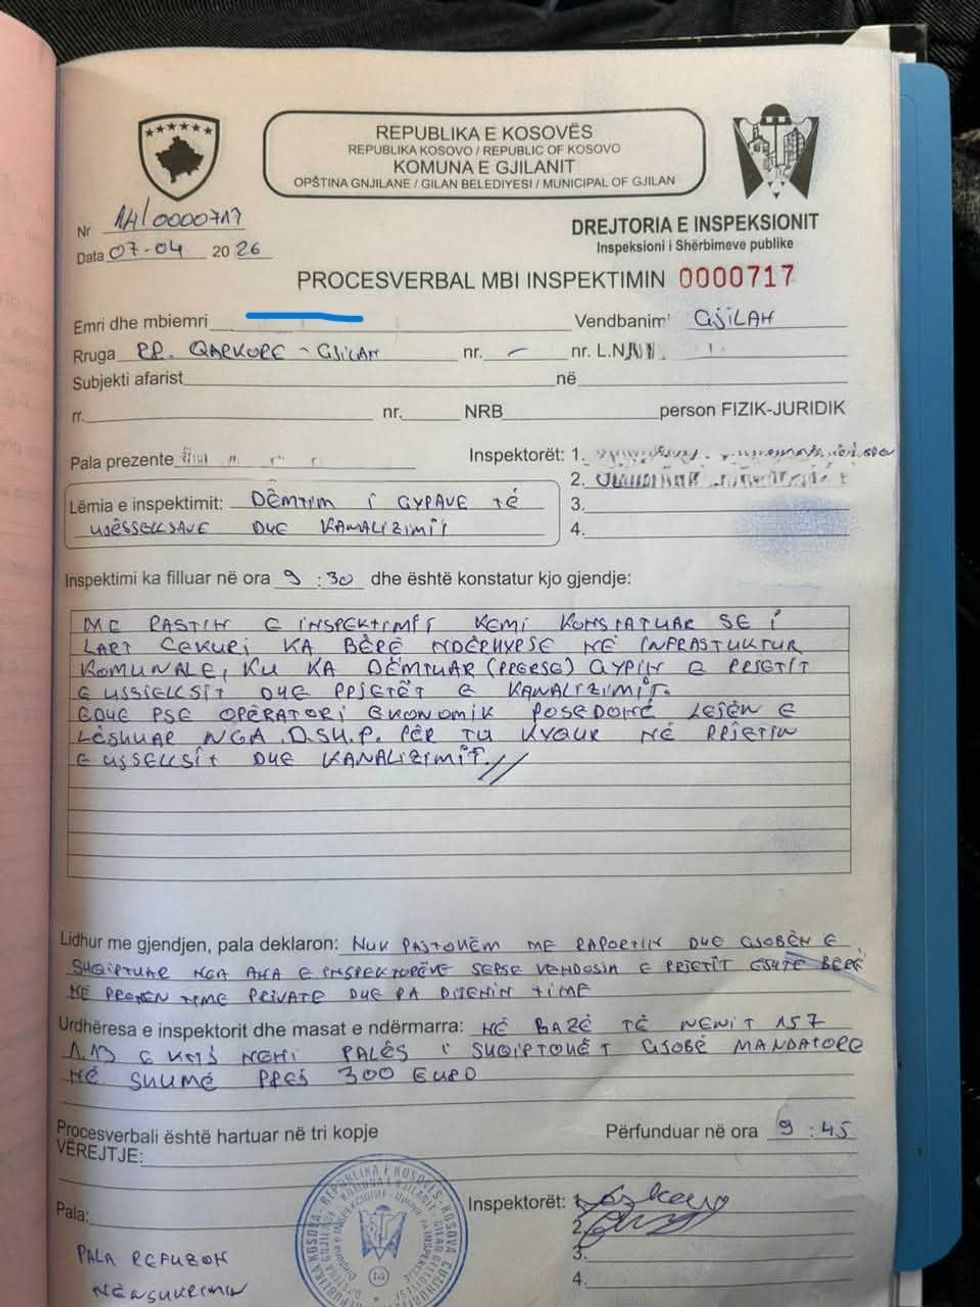 REPUBLIKA E KOSOVËS
REPUBLIKA KOSOVO / REPUBLIC OF KOSOVO
KOMUNA E GJILANIT
OPŠTINA GNJILANE / GILAN BELEDIYESI / MUNICIPAL OF GJILAN
Nr 14/0000717
Data 07-04 2026
DREJTORIA E INSPEKSIONIT
Inspeksioni i Shërbimeve publike
PROCESVERBAL MBI INSPEKTIMIN 0000717
Emri dhe mbiemri Vendbanim GJILAN
Rruga RR. QARKORE - GJILAN nr. - nr. L.NJ.
Subjekti afarist në
rr. nr. NRB person FIZIK-JURIDIK
Pala prezente Inspektorët: 1.
2.
Lëmia e inspektimit: DËMTIM I GYPAVE TË
UJËSSJELLSAVE DHE KANALIZIMIT
3.
4.
Inspektimi ka filluar në ora 9:30 dhe është konstatur kjo gjendje:
ME RASTIN E INSPEKTIMIT KEMI KONSTATUAR SE I
LART CEKURI, KA BËRË NDËRHYRJE NË INFRASTUKTUR
KOMUNALE, KU KA DËMTUAR (PRERSE) GYPIN E RRJETIT
E UJSSJELLSIT DHE RRJETËT E KANALIZIMIT.
EDHE PSE OPERATORI EKONOMIK POSEDONË LEJEN E
LËSHUAR NGA D.SH.P. PËR TU KYQUR NË RRJETIN
E UJSSELLSIT DHE KANALIZIMIT.//
Lidhur me gjendjen, pala deklaron: NUK PAJTOHEM ME RAPORTIN DHE GJOBËN E
SHQIPTUAR NGA ANA E INSPEKTORËVE SEPSE VENDOSJA E RRJETIT ËSHTË BËRË
NË PRONEN TIME PRIVATE DHE PA DIJENIN TIME
Urdhëresa e inspektorit dhe masat e ndërmarra: NË BAZË TË NENIT 157
1.13 E NENI PALËS I SHQIPTOHËT GJOBË MANDATORE
NË SHUMË PREJ 300 EURO
Procesverbali është hartuar në tri kopje Përfunduar në ora 9:45
VËREJTJE:
Pala: Inspektorët: 1.
2.
3.
4.
PALA REFUZON
NËNSHKRIMIN